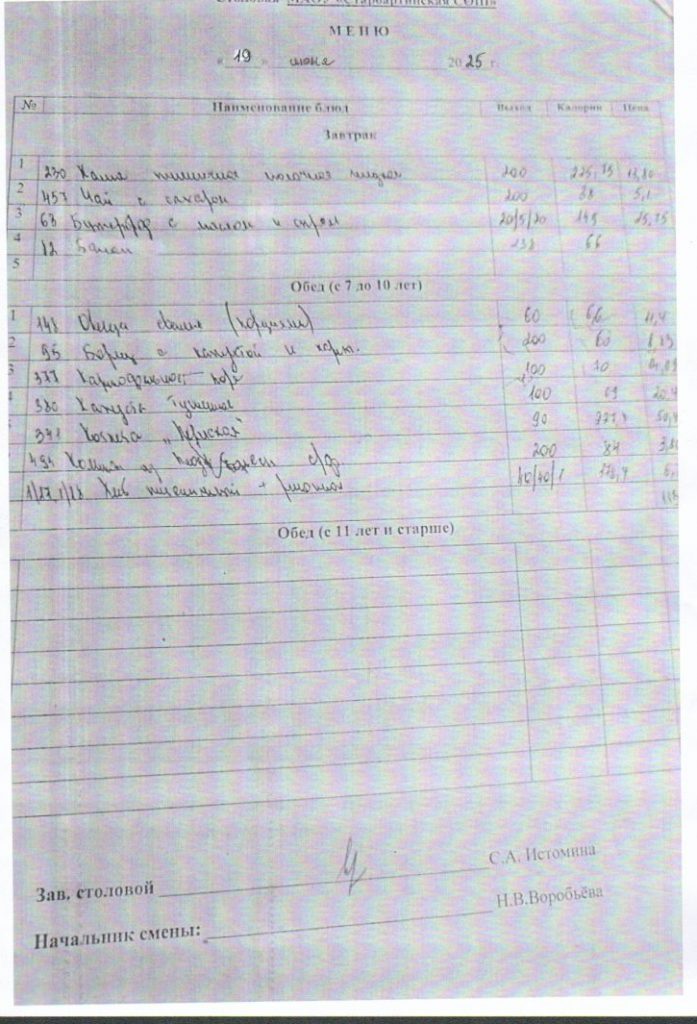 Столовая МАОУ «Староартинская СОШ»
МЕНЮ
« 19 » июня 2025 г.
№ Наименование блюд Выход Калории Цена
Завтрак
1 230 Каша пшеничная молочная жидкая 200 225,75
2 457 Чай с сахаром 200 38 5,1
3 63 Бутерброд с маслом и сыром 20/5/20 145
4 82 Банан 138 66
5
Обед (с 7 до 10 лет)
1 148 Овощи свежие (порциями) 60 6,6 11,4
2 95 Борщ с капустой и карт. 200 60
3 377 Картофельное пюре 100
380 Капуста тушеная 100 20,4
Котлета 90
494 Компот из с/ф 200 84
Хлеб пшеничный + ржаной 40/40/
Обед (с 11 лет и старше)
Зав. столовой С.А. Истомина
Начальник смены: Н.В.Воробьёва